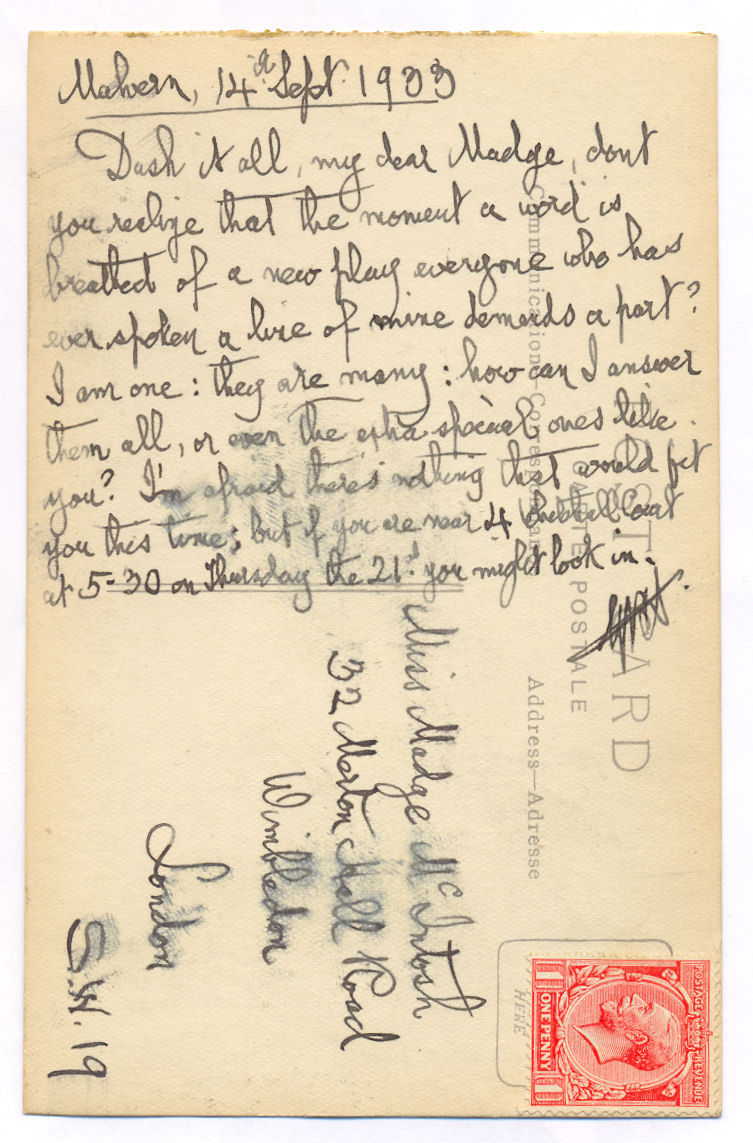 Malvern, 14th Sept. 1933
Dash it all, my dear Madge, dont
you realize that the moment a word is
breathed of a new play everyone who has
ever spoken a line of mine demands a part?
I am one: they are many: how can I answer
them all, or even the extra special ones like
you? I'm afraid there's nothing that would fit
you this time; but if you are near 4 Whitehall Court
at 5-30 on Thursday the 21st you might look in.
Miss Madge McIntosh
32 Merton Hall Road
Wimbledon
London
S.W.19
POST CARD
CARTE POSTALE
Communication—Correspondance
Address—Adresse
HERE
POSTAGE REVENUE
1 ONE PENNY 1